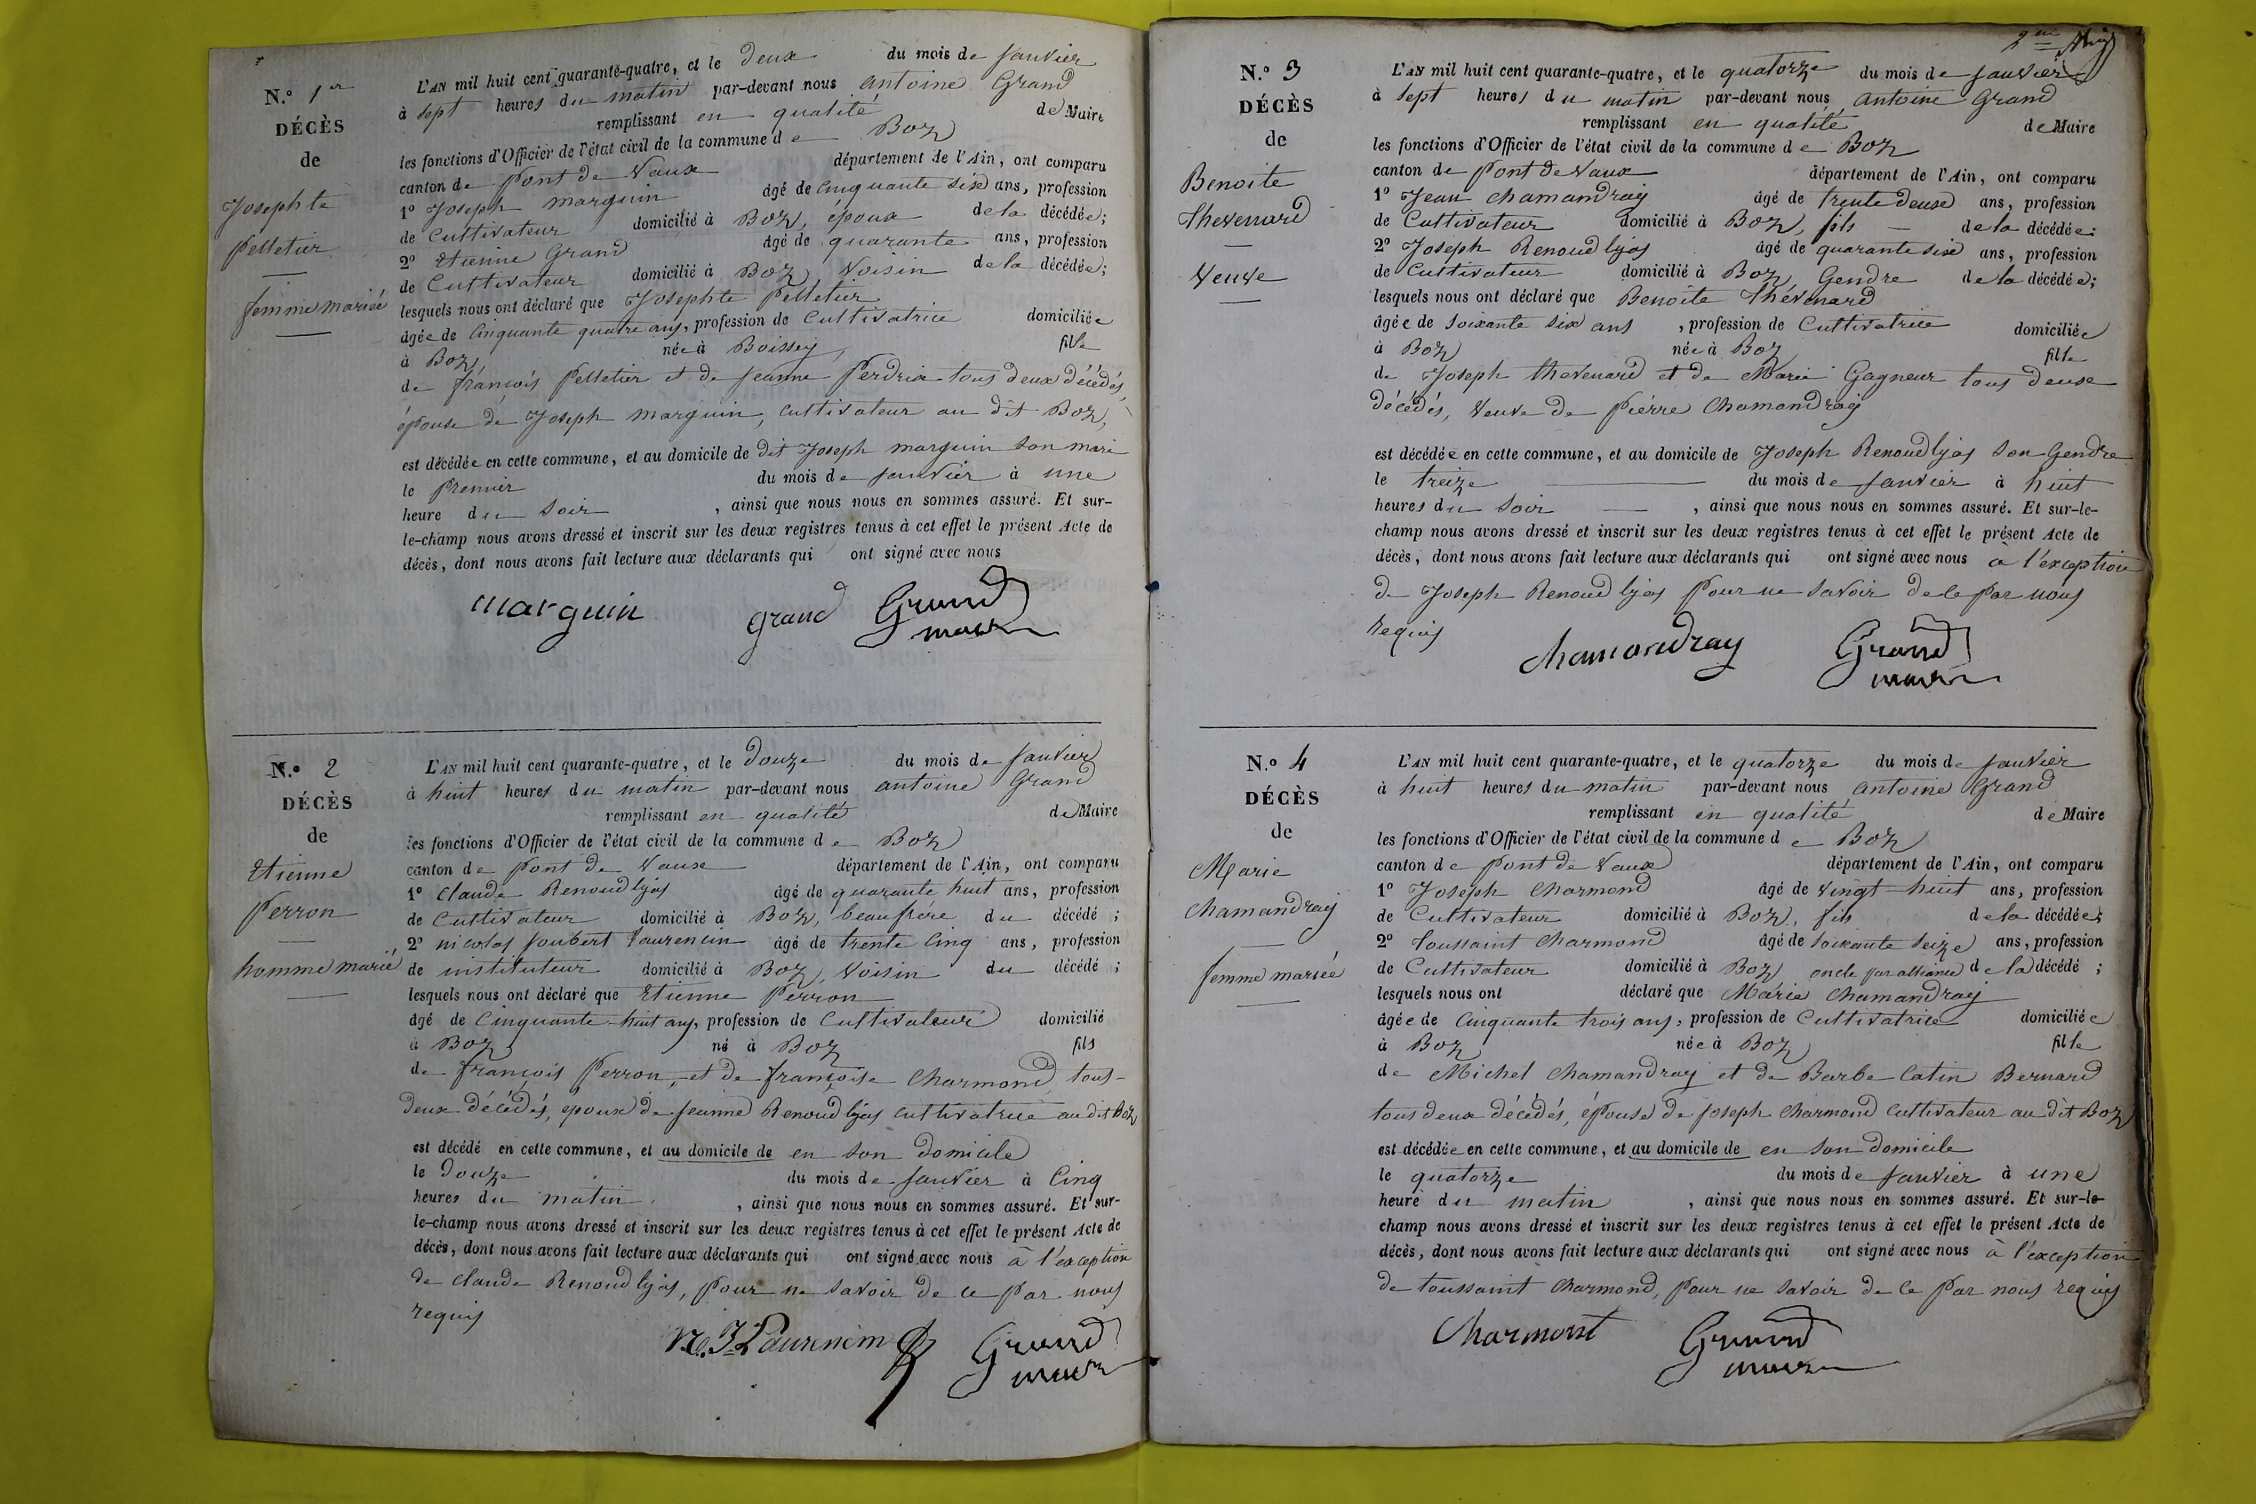 N.o 1er
DÉCÈS
de
Josephte
Pelletier
femme mariée
L'AN mil huit cent quarante-quatre, et le deux du mois de janvier
à sept heures du matin par-devant nous antoine Grand
remplissant en qualité de Maire
les fonctions d'Officier de l'état civil de la commune de Boz
canton de Pont de Vaux département de l'Ain, ont comparu
1o Joseph marguin âgé de cinquante six ans, profession
de Cultivateur domicilié à Boz, époux de la décédée;
2o Etienne Grand âgé de quarante ans, profession
de Cultivateur domicilié à Boz, Voisin de la décédée;
lesquels nous ont déclaré que Josephte Pelletier
âgée de Cinquante quatre ans, profession de Cultivatrice domiciliée
à Boz, née à Boissey, fille
de françois Pelletier et de jeanne Perdrix tous deux décédés,
épouse de Joseph marguin, cultivateur au dit Boz,
est décédée en cette commune, et au domicile de dit Joseph marguin son mari
le Premier du mois de janvier à une
heure du soir, ainsi que nous nous en sommes assuré. Et sur-
le-champ nous avons dressé et inscrit sur les deux registres tenus à cet effet le présent Acte de
décès, dont nous avons fait lecture aux déclarants qui ont signé avec nous
marguin grand Grand
maire
N.o 2
DÉCÈS
de
Etienne
Perron
homme marié
L'AN mil huit cent quarante-quatre, et le douze du mois de janvier
à huit heures du matin par-devant nous antoine Grand
remplissant en qualité de Maire
les fonctions d'Officier de l'état civil de la commune de Boz
canton de Pont de Vaux département de l'Ain, ont comparu
1o Claude Renoud lyas âgé de quarante huit ans, profession
de Cultivateur domicilié à Boz, beaufrére du décédé;
2o nicolas joubert Laurencin âgé de trente cinq ans, profession
de instituteur domicilié à Boz, Voisin du décédé;
lesquels nous ont déclaré que Etienne Perron
âgé de Cinquante-huit ans, profession de Cultivateur domicilié
à Boz, né à Boz fils
de françois Perron, et de françoise Charmond, tous-
deux décédés, époux de jeanne Renoud lyas cultivatrice au dit Boz
est décédé en cette commune, et au domicile de en son domicile
le douze du mois de janvier à Cinq
heures du matin, ainsi que nous nous en sommes assuré. Et sur-
le-champ nous avons dressé et inscrit sur les deux registres tenus à cet effet le présent Acte de
décès, dont nous avons fait lecture aux déclarants qui ont signé avec nous à l'exception
de claude Renoud lyas, pour ne savoir de ce par nous
requis
N. J. Laurencin Grand
maire
2me
N.o 3
DÉCÈS
de
Benoite
Thevenard
Veuve
L'AN mil huit cent quarante-quatre, et le quatorze du mois de janvier
à sept heures du matin par-devant nous antoine Grand
remplissant en qualité de Maire
les fonctions d'Officier de l'état civil de la commune de Boz
canton de Pont de Vaux département de l'Ain, ont comparu
1o Jean chamandray âgé de trente deux ans, profession
de Cultivateur domicilié à Boz, fils de la décédée;
2o Joseph Renoud lyas âgé de quarante six ans, profession
de Cultivateur domicilié à Boz, Gendre de la décédée;
lesquels nous ont déclaré que Benoite Thévenard
âgée de soixante six ans, profession de Cultivatrice domiciliée
à Boz née à Boz fille
de Joseph thevenard et de Marie Gagneur tous deux
décédés, Veuve de Piérre Chamandray
est décédée en cette commune, et au domicile de Joseph Renoud lyas son Gendre
le treize du mois de janvier à huit
heures du soir, ainsi que nous nous en sommes assuré. Et sur-le-
champ nous avons dressé et inscrit sur les deux registres tenus à cet effet le présent Acte de
décès, dont nous avons fait lecture aux déclarants qui ont signé avec nous à l'exception
de Joseph Renoud lyas pour ne savoir de ce par nous
requis
chamandray Grand
maire
N.o 4
DÉCÈS
de
Marie
Chamandray
femme mariée
L'AN mil huit cent quarante-quatre, et le quatorze du mois de janvier
à huit heures du matin par-devant nous antoine Grand
remplissant en qualité de Maire
les fonctions d'Officier de l'état civil de la commune de Boz
canton de Pont de Vaux département de l'Ain, ont comparu
1o Joseph Charmond âgé de Vingt-huit ans, profession
de Cultivateur domicilié à Boz, fils de la décédée;
2o Toussaint Charmond âgé de soixante seize ans, profession
de Cultivateur domicilié à Boz oncle par alliance de la décédé;
lesquels nous ont déclaré que Marie Chamandray
âgée de Cinquante trois ans, profession de Cultivatrice domiciliée
à Boz née à Boz fille
de Michel Chamandray et de Barbe Catin Bernard
tous deux décédés, épouse de joseph Charmond cultivateur au dit Boz
est décédée en cette commune, et au domicile de en son domicile
le quatorze du mois de janvier à une
heure du matin, ainsi que nous nous en sommes assuré. Et sur-le-
champ nous avons dressé et inscrit sur les deux registres tenus à cet effet le présent Acte de
décès, dont nous avons fait lecture aux déclarants qui ont signé avec nous à l'exception
de toussaint Charmond, pour ne savoir de ce par nous requis
Charmont Grand
maire